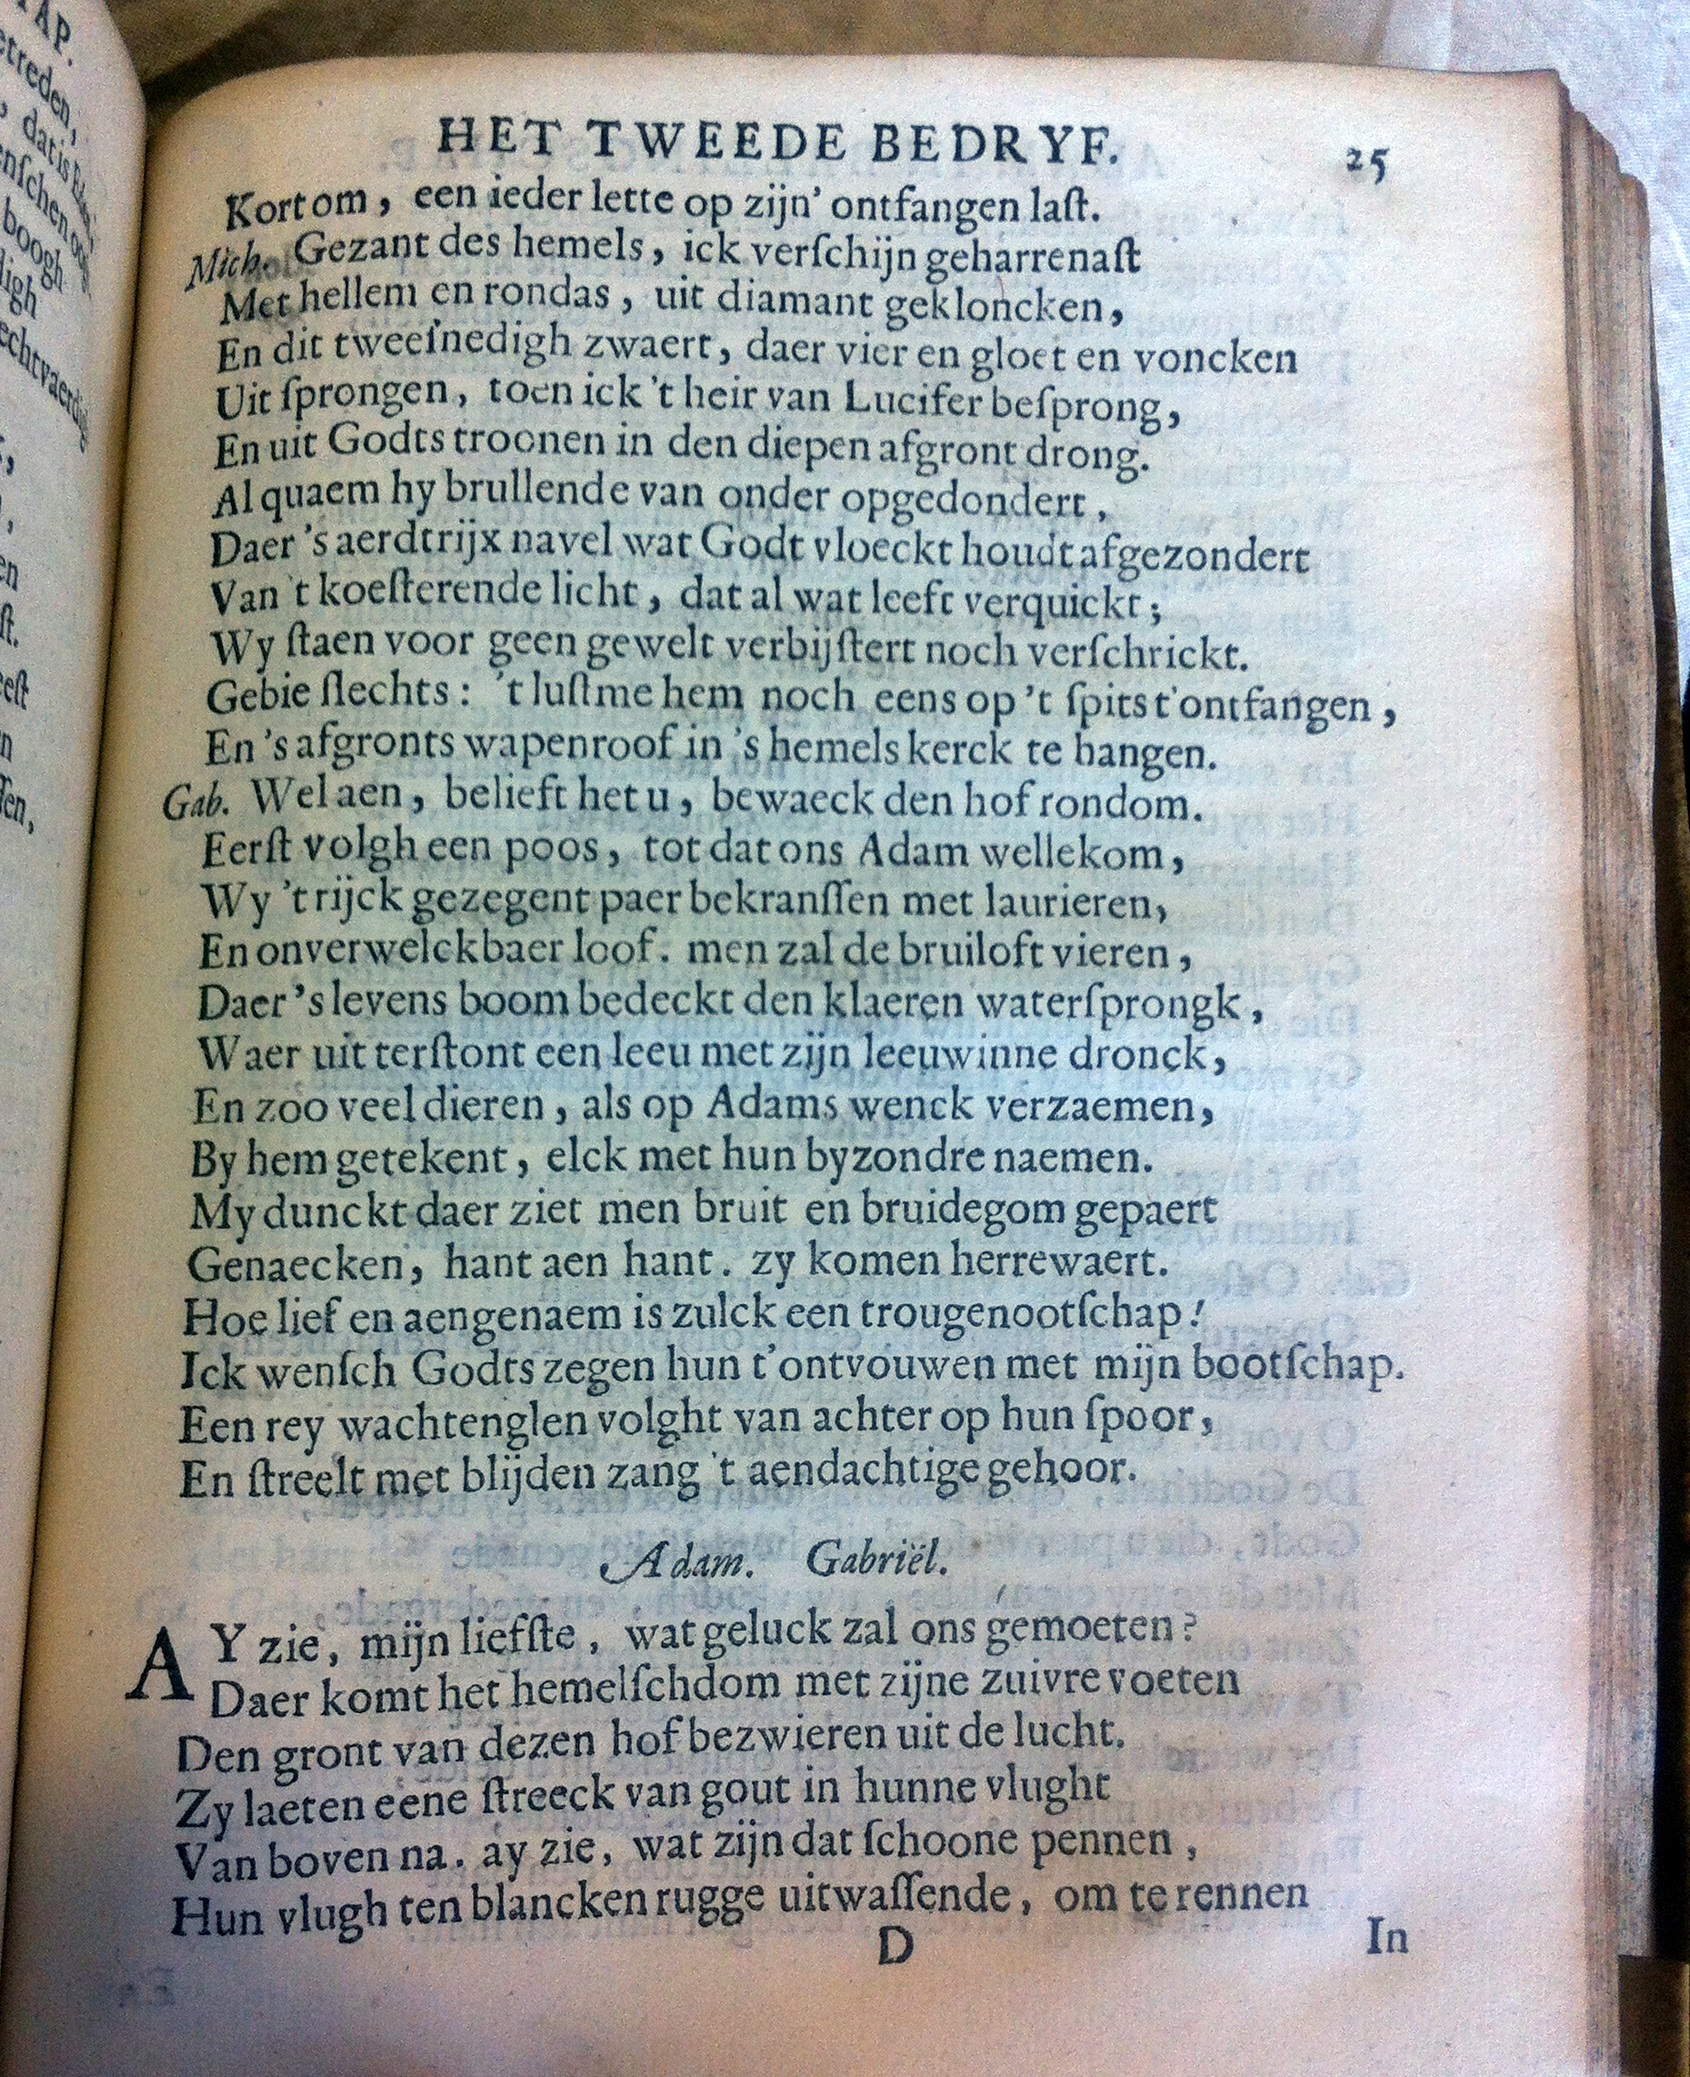 HET TWEEDE BEDRYF. 25
Kortom, een ieder lette op zijn' ontfangen laſt.
Mich. Gezant des hemels, ick verſchijn geharrenaſt
Met hellem en rondas, uit diamant gekloncken,
En dit tweeſnedigh zwaert, daer vier en gloet en voncken
Uit ſprongen, toen ick 't heir van Lucifer beſprong,
En uit Godts troonen in den diepen afgront drong.
Al quaem hy brullende van onder opgedondert,
Daer 's aerdtrijx navel wat Godt vloeckt houdt afgezondert
Van 't koeſterende licht, dat al wat leeft verquickt;
Wy ſtaen voor geen gewelt verbijſtert noch verſchrickt.
Gebie ſlechts: 't luſt me hem noch eens op 't ſpits t'ontfangen,
En 's afgronts wapenroof in 's hemels kerck te hangen.
Gab. Welaen, belieft het u, bewaeck den hof rondom.
Eerſt volgh een poos, tot dat ons Adam wellekom,
Wy 't rijck gezegent paer bekranſſen met laurieren,
En onverwelckbaer loof. men zal de bruiloft vieren,
Daer 's levens boom bedeckt den klaeren waterſprongk,
Waer uit terſtont een leeu met zijn leeuwinne dronck,
En zoo veel dieren, als op Adams wenck verzaemen,
By hem getekent, elck met hun byzondre naemen.
My dunckt daer ziet men bruit en bruidegom gepaert
Genaecken, hant aen hant. zy komen herrewaert.
Hoe lief en aengenaem is zulck een trougenootſchap!
Ick wenſch Godts zegen hun t'ontvouwen met mijn bootſchap.
Een rey wachtenglen volght van achter op hun ſpoor,
En ſtreelt met blijden zang 't aendachtige gehoor.
Adam. Gabriël.
AY zie, mijn liefſte, wat geluck zal ons gemoeten?
Daer komt het hemelſchdom met zijne zuivre voeten
Den gront van dezen hof bezwieren uit de lucht.
Zy laeten eene ſtreeck van gout in hunne vlught
Van boven na. ay zie, wat zijn dat ſchoone pennen,
Hun vlugh ten blancken rugge uitwaſſende, om te rennen
D In